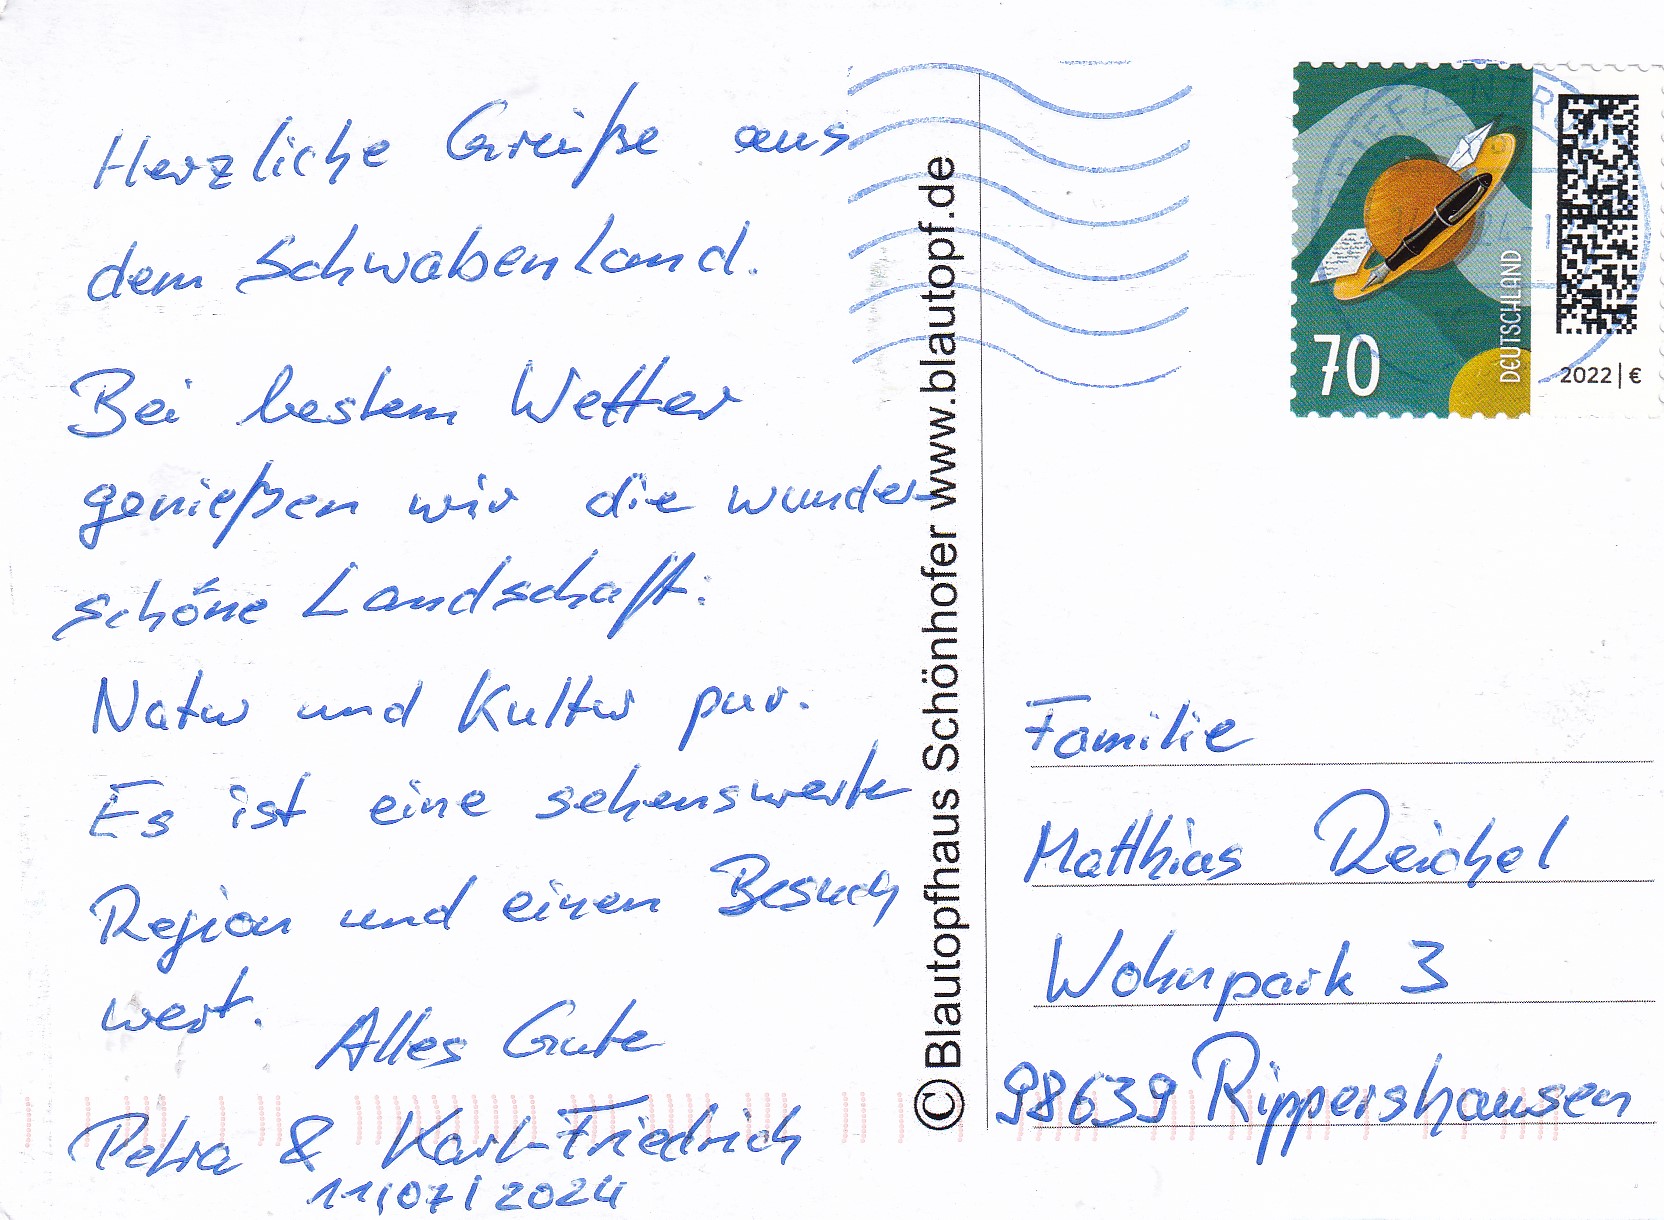 Herzliche Grüße aus
dem Schwabenland.
Bei bestem Wetter
genießen wir die wunder-
schöne Landschaft.
Natur und Kultur pur.
Es ist eine sehenswerte
Region und einen Besuch
wert.
Alles Gute
Petra & Karl-Friedrich
11/07/2024
© Blautopfhaus Schönhofer www.blautopf.de
70
DEUTSCHLAND
2022 | €
Familie
Matthias Reichel
Wohnpark 3
98639 Rippershausen